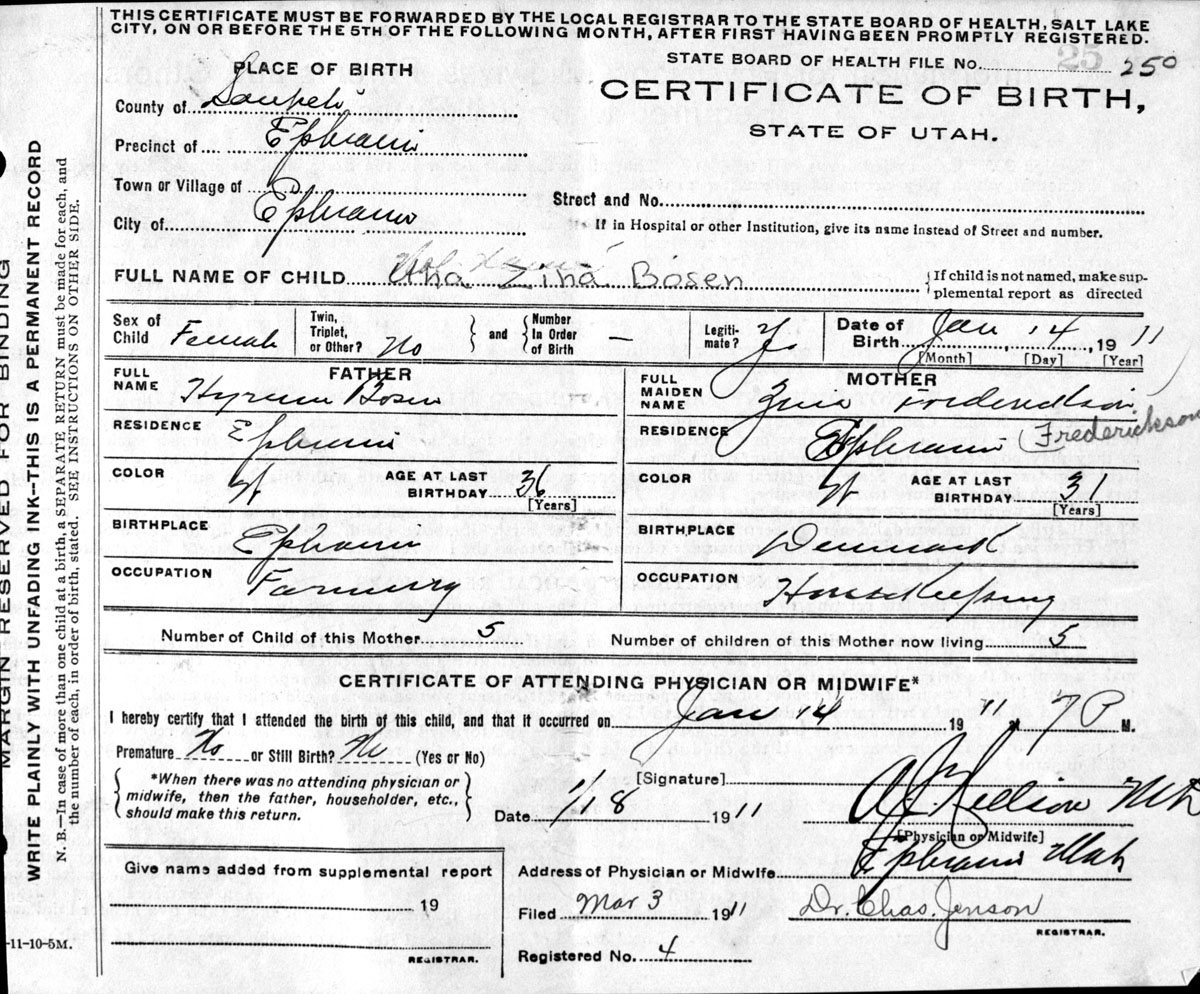 THIS CERTIFICATE MUST BE FORWARDED BY THE LOCAL REGISTRAR TO THE STATE BOARD OF HEALTH, SALT LAKE
CITY, ON OR BEFORE THE 5TH OF THE FOLLOWING MONTH, AFTER FIRST HAVING BEEN PROMPTLY REGISTERED.
MARGIN RESERVED FOR BINDING
WRITE PLAINLY WITH UNFADING INK—THIS IS A PERMANENT RECORD
N. B.—In case of more than one child at a birth, a SEPARATE RETURN must be made for each, and
the number of each, in order of birth, stated. SEE INSTRUCTIONS ON OTHER SIDE.
STATE BOARD OF HEALTH FILE No. 25 250
PLACE OF BIRTH
CERTIFICATE OF BIRTH,
STATE OF UTAH.
County of Sanpete
Precinct of Ephraim
Town or Village of
City of Ephraim
Street and No.
If in Hospital or other Institution, give its name instead of Street and number.
FULL NAME OF CHILD Utha Zina Bosen
{If child is not named, make sup-
plemental report as directed
Sex of Child Female
Twin, Triplet, or Other? No } and { Number In Order of Birth —
Legiti- mate? Yes
Date of Birth Jan 14, 1911
[Month] [Day] [Year]
FATHER
FULL NAME Hyrum Bosen
RESIDENCE Ephraim
COLOR W AGE AT LAST BIRTHDAY 36
[Years]
BIRTHPLACE Ephraim
OCCUPATION Farming
MOTHER
FULL MAIDEN NAME Fredericksen
RESIDENCE Ephraim (Frederickson
COLOR W AGE AT LAST BIRTHDAY 31
[Years]
BIRTHPLACE Denmark
OCCUPATION Housekeeping
Number of Child of this Mother 5 Number of children of this Mother now living 5
CERTIFICATE OF ATTENDING PHYSICIAN OR MIDWIFE*
I hereby certify that I attended the birth of this child, and that it occurred on Jan 14 1911, 7 P M.
Premature No or Still Birth? No (Yes or No)
{ *When there was no attending physician or
midwife, then the father, householder, etc.,
should make this return. }
[Signature]
Date 1/18 1911
[Physician or Midwife]
Address of Physician or Midwife Ephraim Utah
Give name added from supplemental report
19
REGISTRAR.
Filed Mar 3 1911 Dr. Chas. Jenson
REGISTRAR.
Registered No. 4
-11-10-5M.